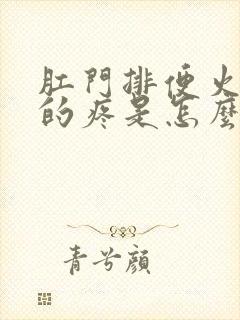 肛門排便火
的疼是怎麼
青兮顏